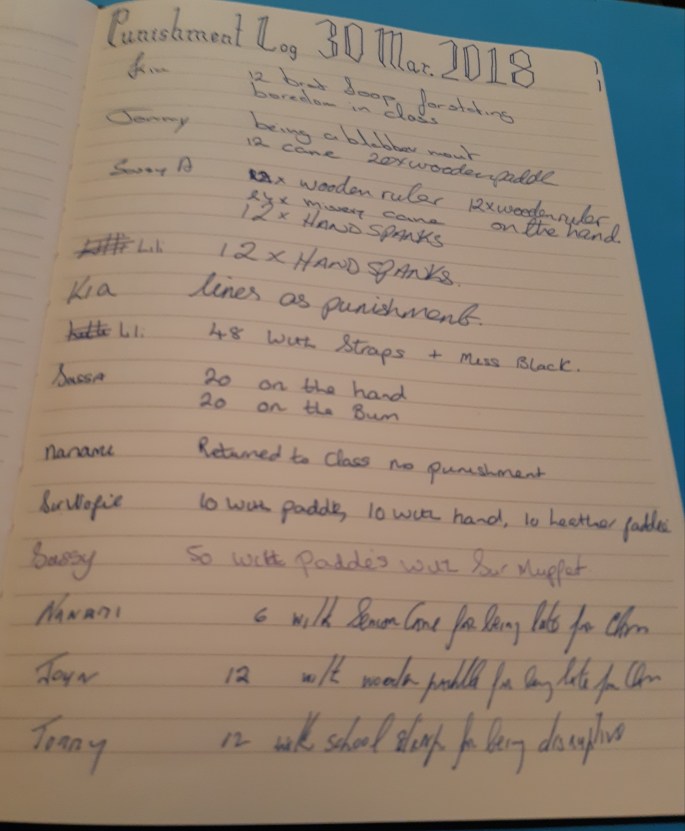 Punishment Log 30 Mar. 2018
12 brat loop for stating
boredom in class
Jonny being a blabber mout
12 cane 20x wooden paddl
Sassy A 12x wooden ruler 12x wooden ruler
24x misery cane on the hand.
12x HAND SPANKS
Lil 12 x HAND SPANKS.
Kia lines as punishment.
Li. 48 with Straps + Miss Black.
Sassa 20 on the hand
20 on the Bum
Naname Returned to Class no punishment
Sir Wofie 10 with paddle, 10 with hand, 10 leather paddle
Sassy 50 with paddes with Sir Muppet
Nanami 6 with Senior Cane for being late for Class
12 with wooden paddle for being late for Class
Jonny 12 with school strap for being disruptive